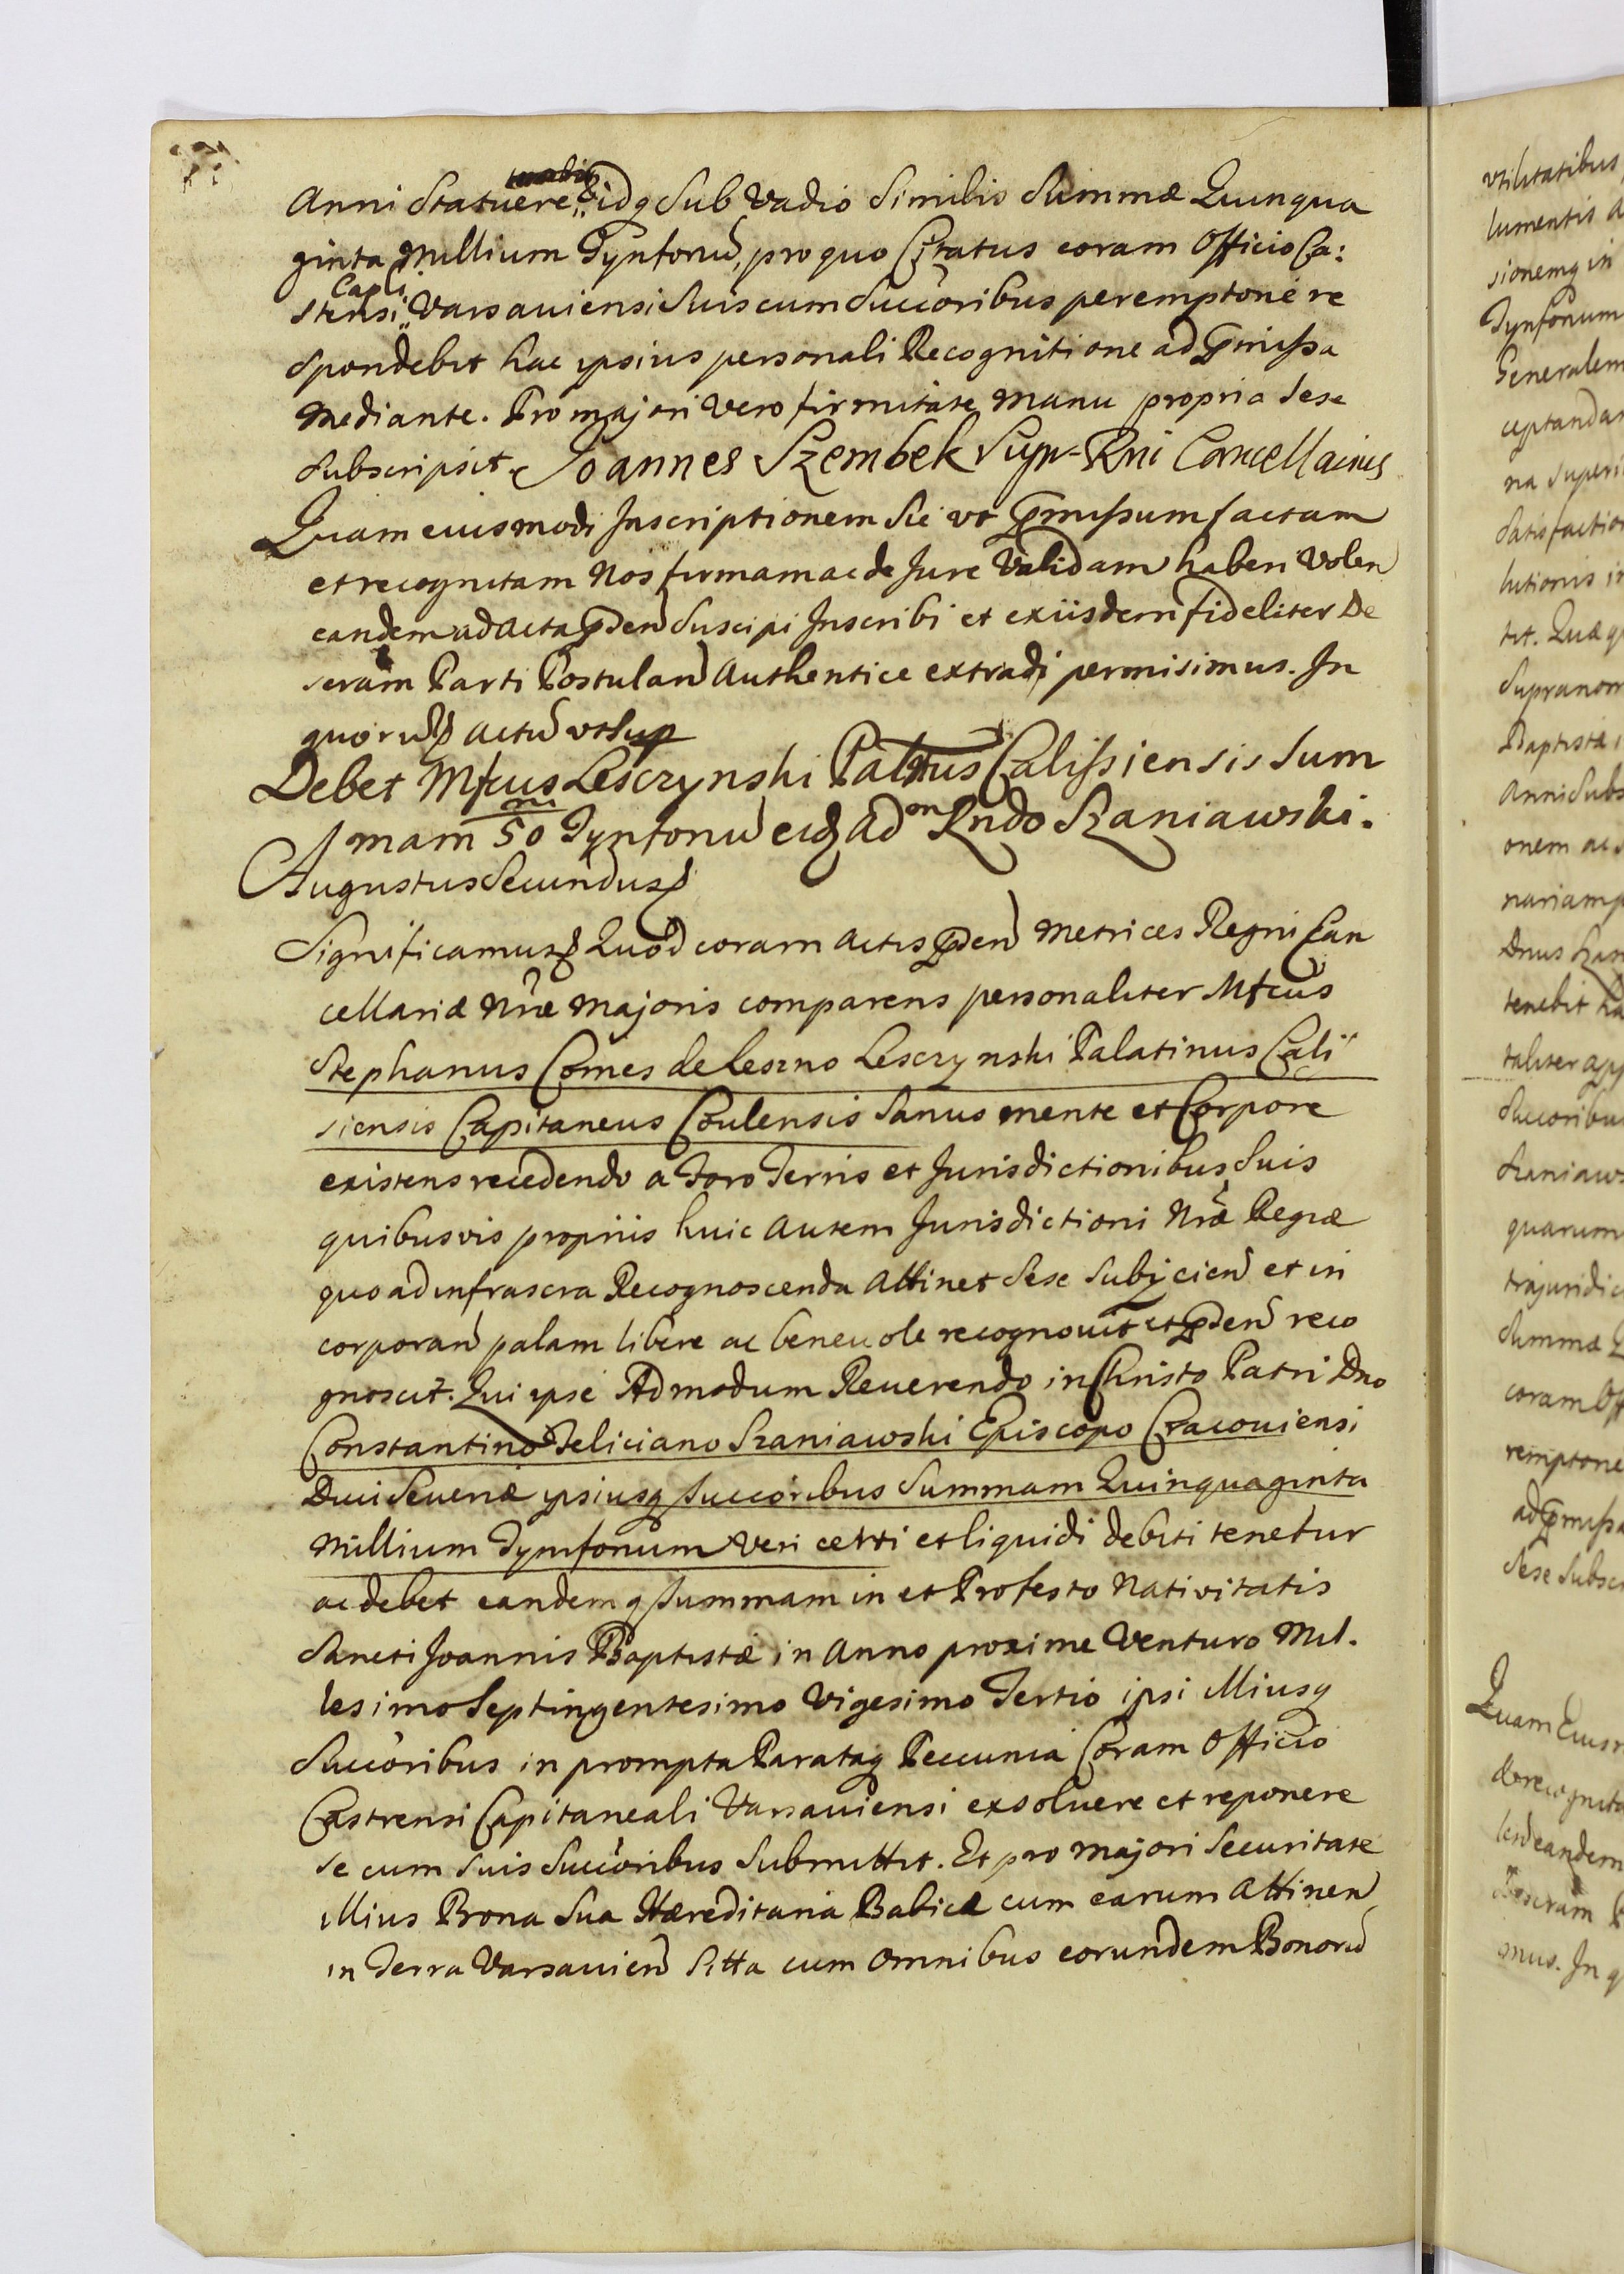 Anni Statuere idq Sub Vadio Similis Summæ Quinqua
ginta Millium Tynforū, pro quo Citatus coram Officio Ca:
Capli
strensi Varsauiensi Suis cum Succoribus peremptorie re
spondebit hac ipsius personali Recognitione ad pmissa
Mediante. Pro majori vero firmitate manu propria sese
Subscripsit. Joannes Szembek Sup- Rni Cancellarius
Quam eiusmodi Inscriptionem Sic vt pmissum factam
et recognitam Nos firmam ac de Jure Validam haberi Volen
eandem ad acta pden Suscipi Inscribi et exiisdem fideliter De
scram Parti Postulan Authentice extradi permisimus. In
quorū actū vt sup
Debet Mfcus Lesczynski Paltnus Calissiensis Sum
mam 50 m Tynforū eid Ad on Rndo Szaniawski.
Augustus Secundus
Significamus Quod coram actis pden Metrices Regni Can
cellariæ Nræ Majoris comparens personaliter Mfcus
Stephanus Comes de Leszno Lesczynski Palatinus Cali
siensis Capitaneus Coulensis Sanus mente et Corpore
existens recedendo a Foro Terris et Jurisdictionibus Suis
quibusvis propriis huic Autem Jurisdictioni Nræ Regiæ
quo ad infrascra Recognoscenda Attinet Sese Subijcien et in
corporan palam libere ac beneuole recognouit et pden reco
gnoscit. Qui ipse Admodum Reuerendo in Christo Patri Dno
Constantino Feliciano Szaniawski Episcopo Cracouiensi
Duci Seueriæ ipsiusq Succoribus Summam Quinquaginta
Millium Tymfonum veri certi et liquidi debiti tenetur
ac debet eandemq Summam in et Pro festo Nativitatis
Sancti Joannis Baptistæ in Anno proxime Venturo Mil.
lesimo Septingentesimo Vigesimo Tertio ipsi illiusq
Succoribus in prompta Parataq Peccunia Coram Officio
Castrensi Capitaneali Varsauiensi exsoluere et reponere
se cum suis Succoribus Submittit. Et pro majori Securitate
illius Brona Sua Hæreditaria Babicæ cum earum Attinen
in Terra Varsauien Sitta cum Omnibus eorundem Bonorū
vtilitatibus
lumentis
sionemq in
Tynfonum
Generalem
ceptandam
na Superi
Satisfaction
lutionis in
tit. Quæ
Supranom
Baptistæ
Anni Subs
onem ac
nariam
Dnus Szan
tenebit ha
taliter
Succoribus
Szaniaws
quarum
trajuridic
Summæ Q
coram Off
remptorie
ad pmissa
Sese Subsc
Quam Eiusm
et recognita
eandem
scram P
mus. In q